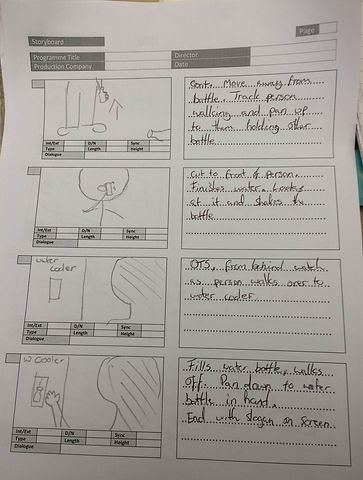 Page
Storyboard
Programme Title
Director
Production Company
Date
Cont. Move away from
bottle. Track person
walking and pan up
to them holding other
bottle
Int/Ext D/N Sync
Type Length Height
Dialogue
Cut to front of person.
Finishes water. Looks
at it and shakes the
bottle
Int/Ext D/N Sync
Type Length Height
Dialogue
water
cooler
OTS, from behind watch
as person walks over to
water cooler
Int/Ext D/N Sync
Type Length Height
Dialogue
W Cooler
Fills water bottle, walks
off. Pan down to water
bottle in hand.
End with slogan on screen
Int/Ext D/N Sync
Type Length Height
Dialogue